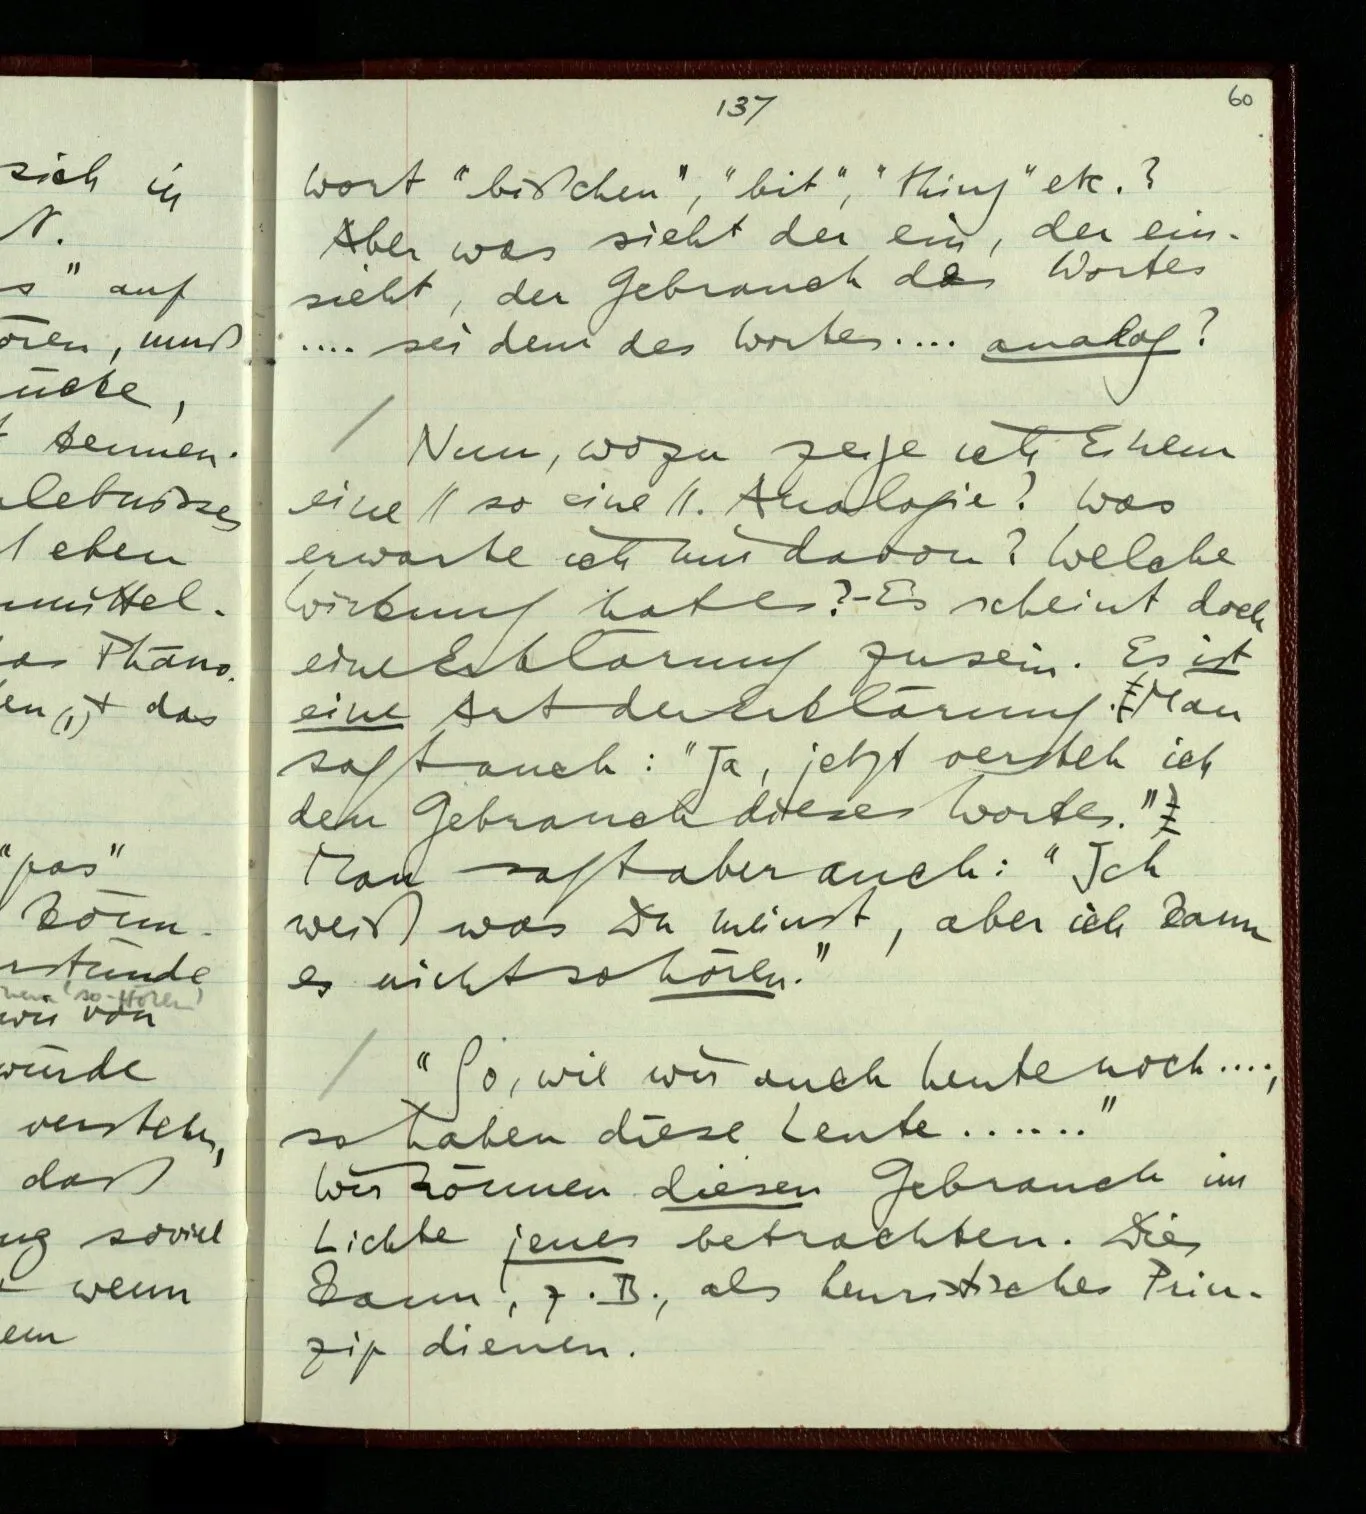 sich in
N.
s" auf
ören, muß
ücke,
kennen.
rlebnisses
eben
nmittel-
as Phäno-
en, das
"pas"
könn-
rstünde
'so-Hören'
wir von
würde
verstehn,
daß
ng soviel
wenn
em
137
60
Wort "bißchen", "bit", "thing" etc.?
Aber was sieht der ein, der ein-
sieht, der Gebrauch des Wortes
.... sei dem des Wortes .... analog?
/ Nun, wozu zeige ich Einem
eine // so eine //. Analogie? Was
erwarte ich mir davon? Welche
Wirkung hat es? – Es scheint doch
eine Erklärung zu sein. Es ist
eine Art der Erklärung. (Man
sagt auch: "Ja, jetzt versteh ich
den Gebrauch dieses Wortes.")
Man sagt aber auch: "Ich
weiß was Du meinst, aber ich kann
es nicht so hören."
/ "So, wie wir auch heute noch ....,
so haben diese Leute ......"
Wir können diesen Gebrauch im
Lichte jenes betrachten. Dies
kann, z.B., als heuristisches Prin-
zip dienen.